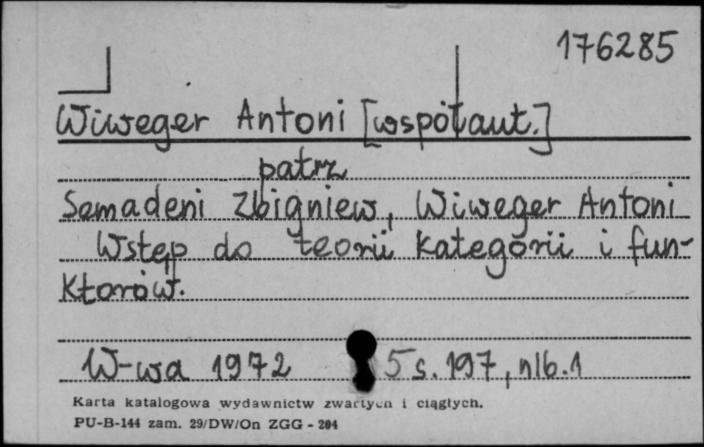 176285
Wiweger Antoni [współaut.]
patrz
Semadeni Zbigniew, Wiweger Antoni
Wstęp do teorii kategorii i fun-
ktorów.
W-wa 1972 5 s. 197, nlb. 1
Karta katalogowa wydawnictw zwartych i ciągłych.
PU-B-144 zam. 29/DW/On ZGG - 204